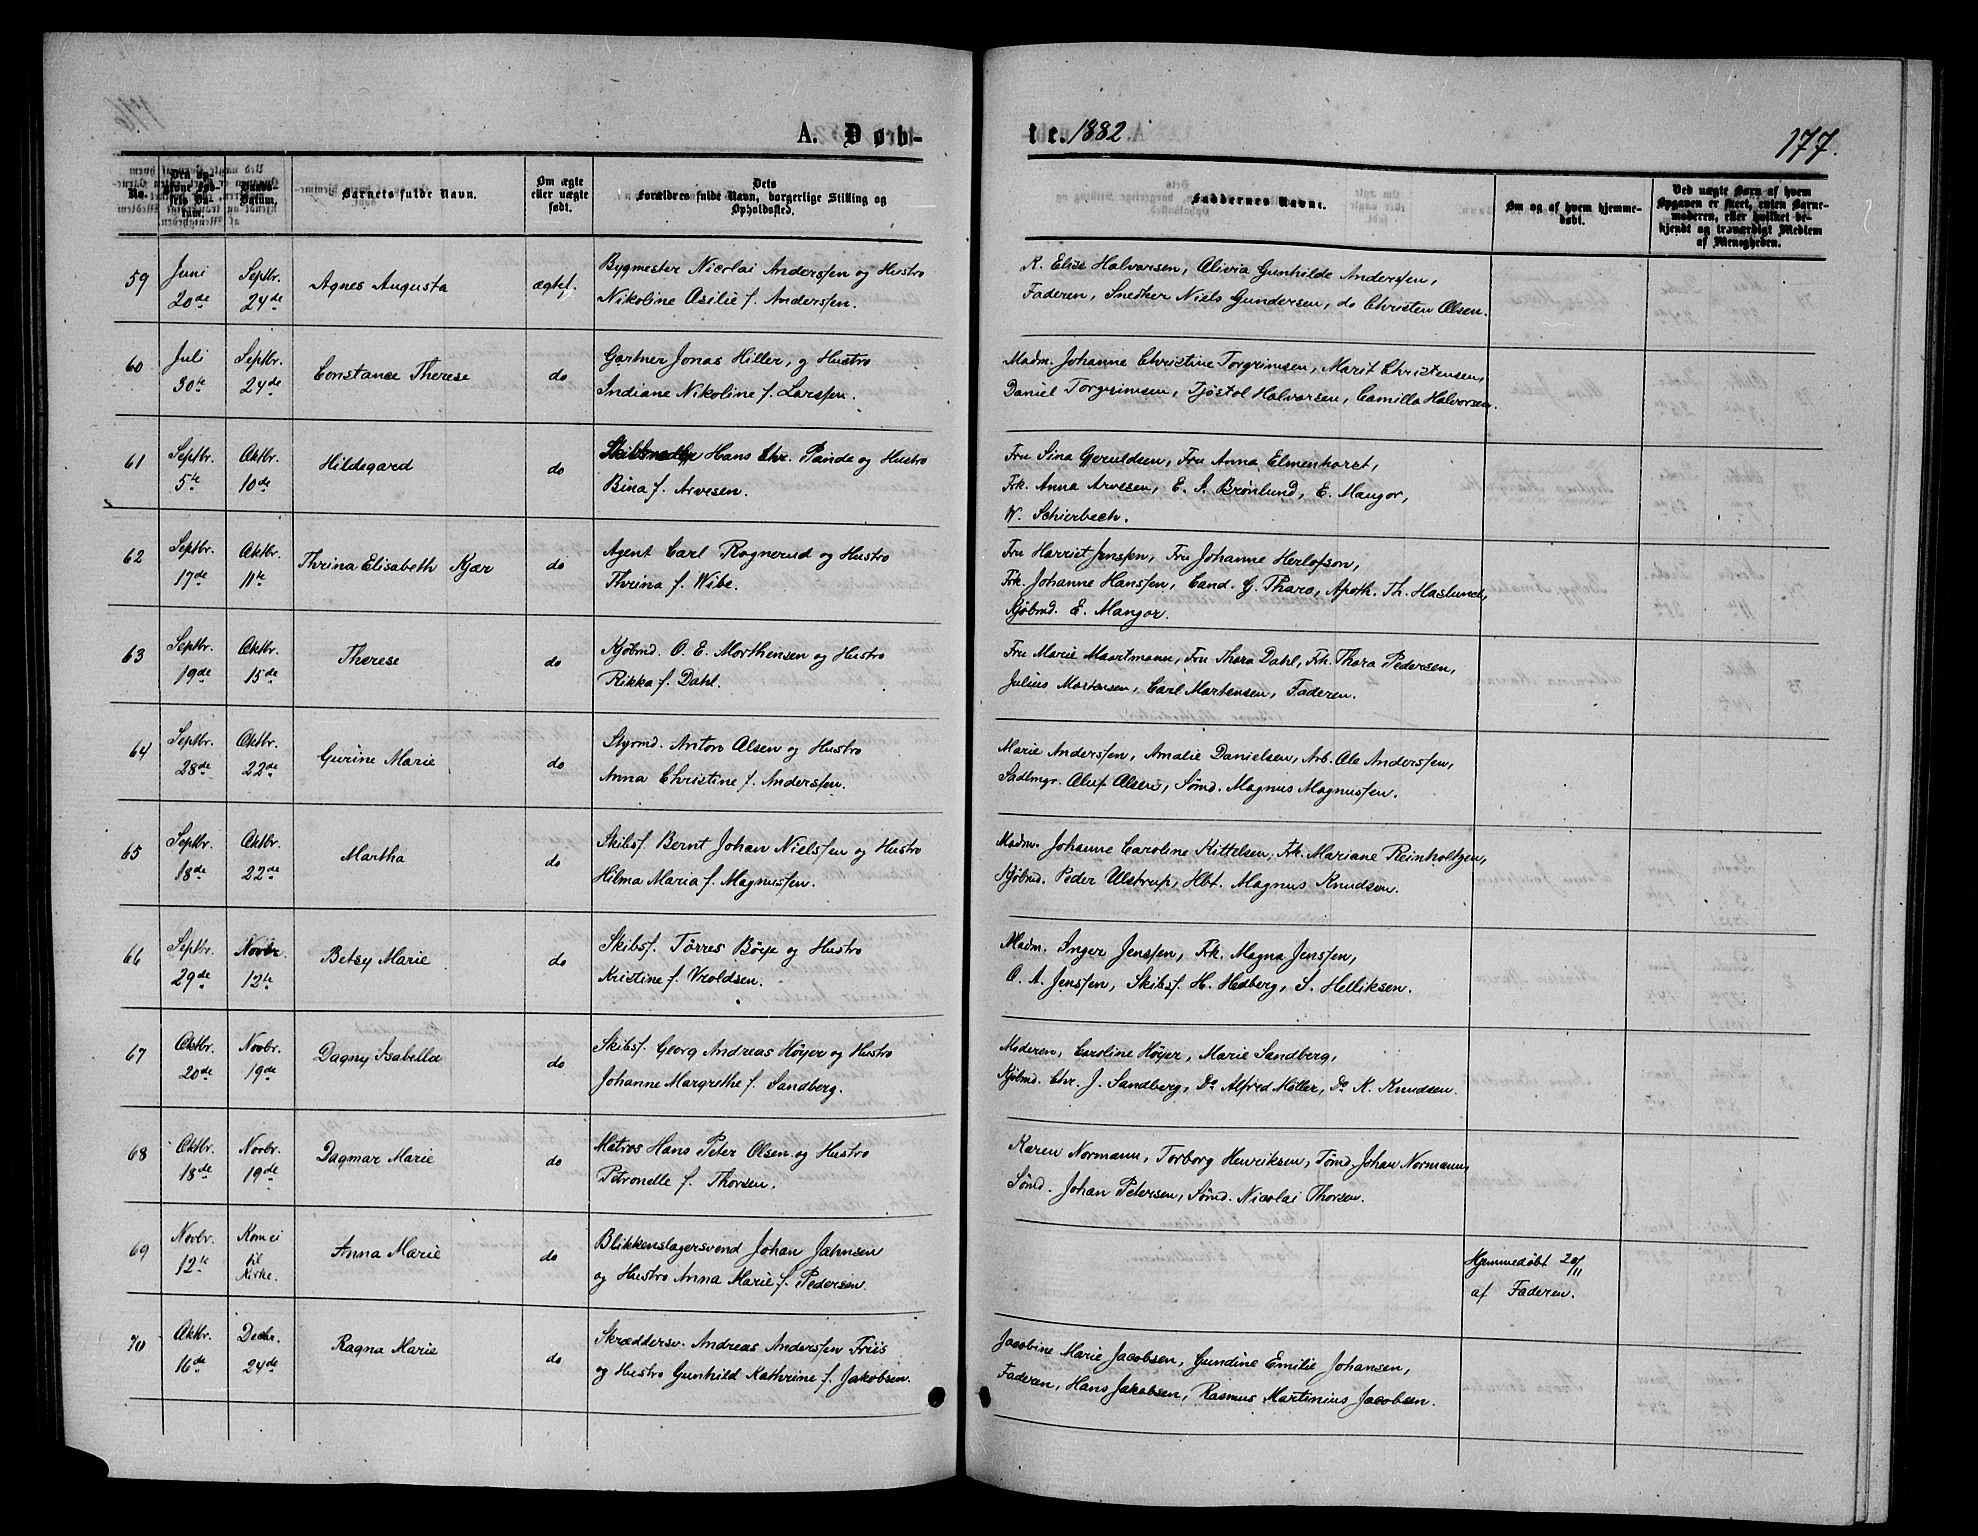 A. Døb-
te. 1882
177.
No.
Den op-
givne Fød-
sels Da-
tum.
Daabs-
Datum.
Barnets fulde Navn.
Om ægte
eller uægte
født.
Dets
Forældres fulde Navn, borgerlige Stilling og
Opholdssted.
Faddernes Navne.
Om og af hvem hjemme-
døbt.
Ved uægte Børn af hvem
Opgaven er skeet, enten Barne-
moderen, eller hvilket be-
kjendt og troværdigt Medlem
af Menigheden.
59 Juni 20de Septbr. 24de Agnes Augusta ægtef.
Bygmester Nicolai Anderssen og Hustro
Nikoline Osilie f. Anderssen.
K. Elise Halvorsen, Olivia Gunhilde Anderssen,
Faderen, Snedker Niels Gundersen, do Christen Olsen.
60 Juli 30te Septbr. 24de Constance Therese do
Gartner Jonas Hiller, og Hustro
Indiane Nikoline f. Larssen.
Madm. Johanne Christine Torgrimsen, Marit Christensen,
Daniel Torgrimsen, Tjøstol Halvorsen, Camilla Halvorsen.
61 Septbr. 5te Oktbr. 10de Hildegard do
Hans Chr. Pande og Hustro
Bina f. Arvesen.
Fru Sina Geruldsen, Fru Anna Elmenhorst,
Frk. Anna Arvesen, E. S. Brönlund, E. Mangor,
W. Schierbech.
62 Septbr. 17de Oktbr. 11te Thrina Elisabeth Kjær do
Agent Carl Rognerud og Hustro
Thrina f. Wibe.
Fru Harriet Jenssen, Fru Johanne Herlofson,
Frk. Johanne Hanssen, Cand. G. Tharo, Apoth. Th. Haslund,
Kjøbmd. E. Mangor.
63 Septbr. 19de Oktbr. 15de Therese do
Kjøbmd. O. E. Morthensen og Hustro
Rikka f. Dahl.
Fru Marie Maartmann, Fru Thora Dahl, Frk. Thora Pedersen,
Julius Mortensen, Carl Mortensen, Faderen.
64 Septbr. 28de Oktbr. 22de Gurine Marie do
Styrmd. Anton Olsen og Hustro
Anna Christine f. Anderssen.
Marie Anderssen, Amalie Danielsen, Arb. Ole Anderssen,
Sadlmgr. Oluf Olsen, Sömd. Magnus Magnussen.
65 Septbr. 18de Oktbr. 22de Martha do
Skibsf. Bernt Johan Nielssen og Hustro
Hilma Maria f. Magnussen.
Madm. Johanne Caroline Kittelsen, Frk. Mariane Reinholtzen,
Kjøbmd. Peder Ulstrup, Hbt. Magnus Knudsen.
66 Septbr. 29de Novbr. 12te Betsy Marie do
Skibsf. Törres Böye og Hustro
Kristine f. Vroldsen.
Madm. Inger Jenssen, Frk. Magna Jenssen,
O. A. Jenssen, Skibsf. H. Hedberg, S. Helliksen.
67 Oktbr. 20de Novbr. 19de Dagny Isabella do
Skibsf. Georg Andreas Höyer og Hustro
Johanne Margrethe f. Sandberg.
Moderen, Caroline Höyer, Marie Sandberg,
Kjøbmd. Chr. J. Sandberg, Do Alfred Möller, Do K. Knudsen.
68 Oktbr. 18de Novbr. 19de Dagmar Marie do
Matros Hans Peter Olsen og Hustro
Petronelle f. Thorsen.
Karen Normann, Torborg Henriksen, Tömd. Johan Normann,
Sömd. Johan Petersen, Sömd. Nicolai Thorsen.
69 Novbr. 12te Kom ei til Kirke. Anna Marie do
Blikkenslagersvend Johan Jahnsen
og Hustro Anna Marie f. Pedersen
Hjemmedøbt 20/11
af Faderen.
70 Oktbr. 16de Decbr. 24de Ragna Marie do
Skræddersv. Andreas Anderssen Friis
og Hustro Gunhild Kathrine f. Jakobsen.
Jacobine Marie Jacobsen, Gundine Emilie Johansen,
Faderen, Hans Jakobsen, Rasmus Martinius Jacobsen.